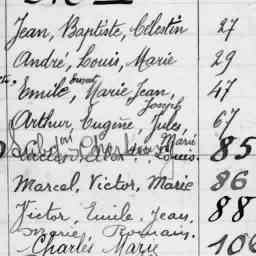 Jean, Baptiste, Célestin 27
André, Louis, Marie 29
Emile, Marie Jean, 47
Joseph
Arthur, Eugène, Jules, 67
Marie
Louis. 85
Marcel, Victor, Marie 86
Victor, Emile, Jean, 88
Marie, Romain.
Charles Marie 106